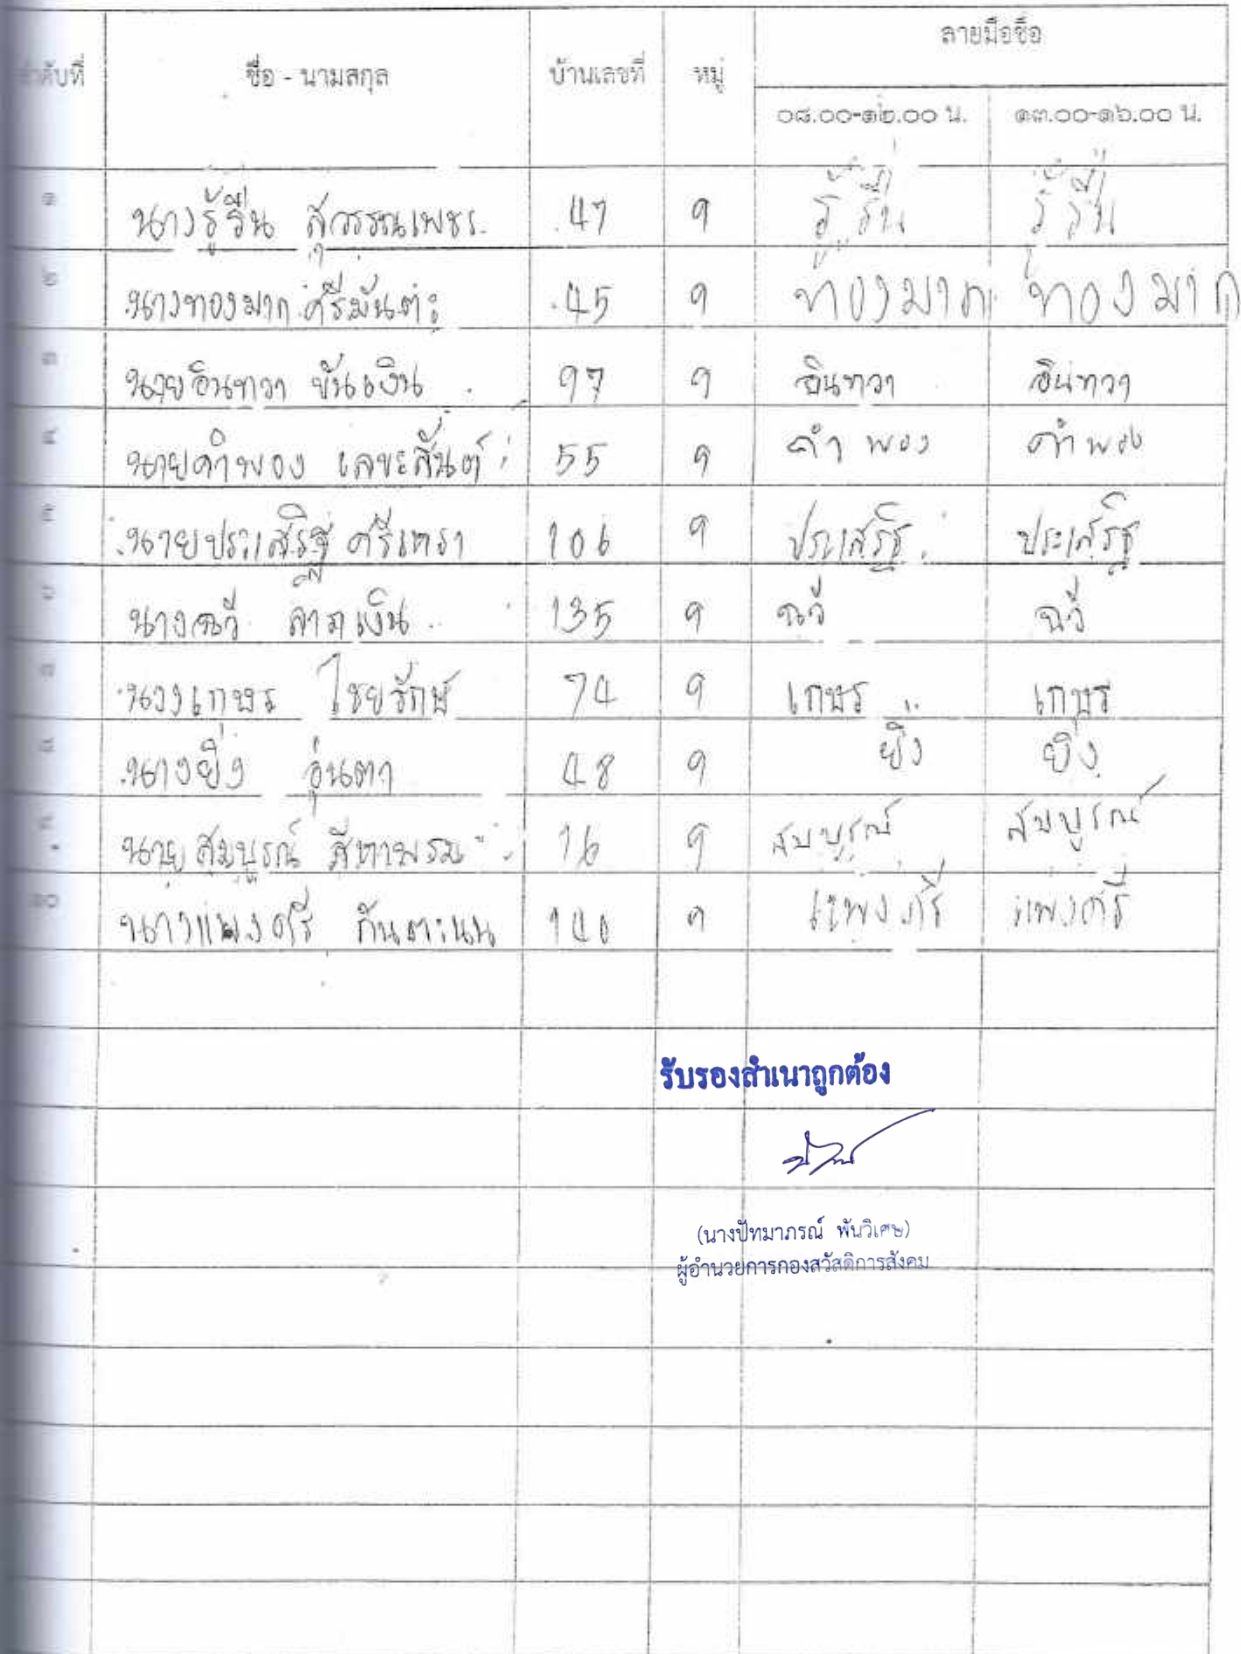 ลำดับที่ ชื่อ - นามสกุล บ้านเลขที่ หมู่ ลายมือชื่อ
๐๘.๐๐-๑๒.๐๐ น. ๑๓.๐๐-๑๖.๐๐ น.
๑ นางรู้รื่น สุวรรณเพชร 47 9 รู้รื่น รู้รื่น
๒ นางทองมาก ศรีมันตะ 45 9 ทองมาก ทองมาก
๓ นายอินทวา ขันเงิน 97 9 อินทวา อินทวา
๔ นายคำพอง เลขะสันต์ 55 9 คำพอง คำพอง
๕ นายประเสริฐ ศรีเหรา 106 9 ประเสริฐ ประเสริฐ
๖ นางฉวี ลาภเงิน 135 9 ฉวี ฉวี
๗ นางเกษร ไชยรักษ์ 74 9 เกษร เกษร
๘ นางยิ่ง อุ่นตา 48 9 ยิ่ง ยิ่ง
๙ นายสมบูรณ์ สีหาพรม 16 9 สมบูรณ์ สมบูรณ์
๑๐ นางแพงศรี กันตะนน 140 9 แพงศรี แพงศรี
รับรองสำเนาถูกต้อง
(นางปัทมาภรณ์ พันวิเศษ)
ผู้อำนวยการกองสวัสดิการสังคม